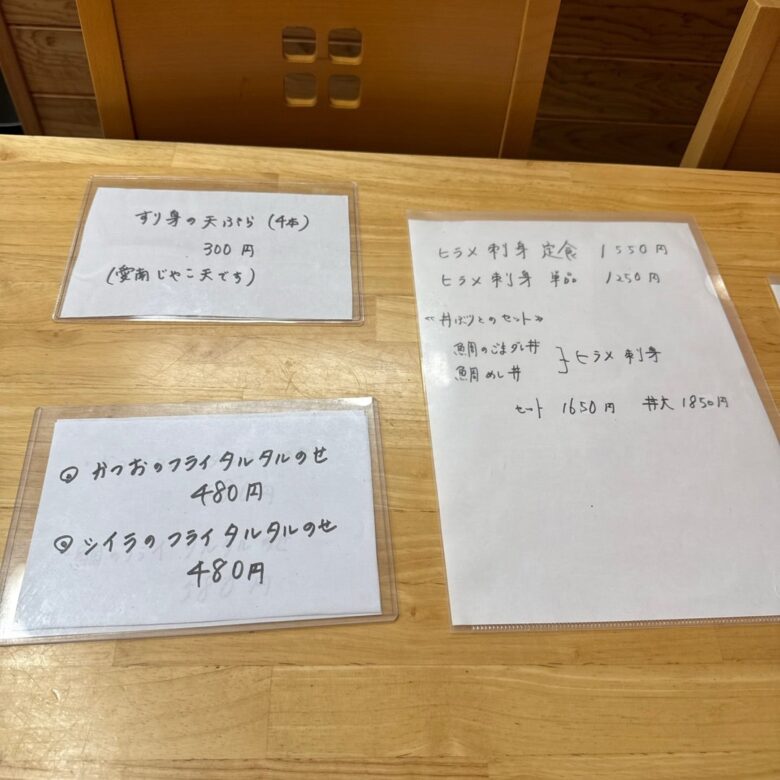 すり身の天ぷら(4本)
300円
(愛南じゃこ天です)
◎ かつおのフライタルタルのせ
480円
◎ シイラのフライタルタルのせ
480円
ヒラメ 刺身 定食 1550円
ヒラメ 刺身 単品 1250円
≪丼ぶりとのセット≫
鯛のごまダレ丼
鯛めし丼
}ヒラメ 刺身
セット 1650円 丼大 1850円